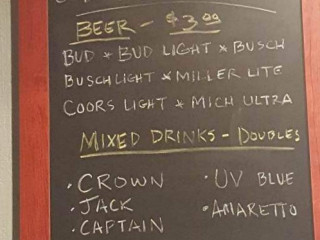 BEER - $3.00
BUD * BUD LIGHT * BUSCH
BUSCH LIGHT * MILLER LITE
COORS LIGHT * MICH ULTRA
MIXED DRINKS - DOUBLES
• CROWN • UV BLUE
• JACK • AMARETTO
• CAPTAIN